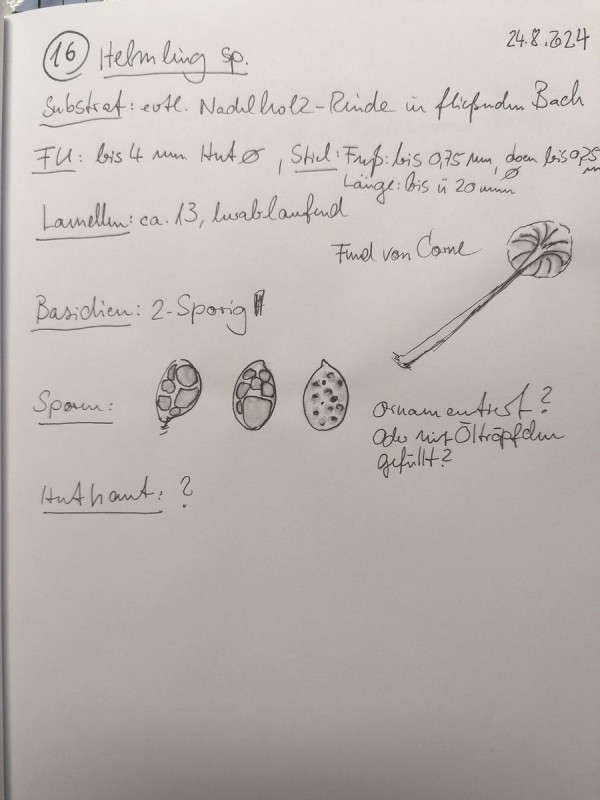 24.8.2024
16 Helmling sp.
Substrat: evtl. Nadelholz-Rinde in fließendem Bach
FK: bis 4 mm Hut Ø, Stiel: Fuß: bis 0,75 mm, oben bis 0,25 mm Ø
Länge: bis ü 20 mm
Lamellen: ca. 13, herablaufend
Fund von
Basidien: 2-Sporig
Sporen:
ornamentiert?
Oder mit Öltröpfchen
gefüllt?
Huthaut: ?